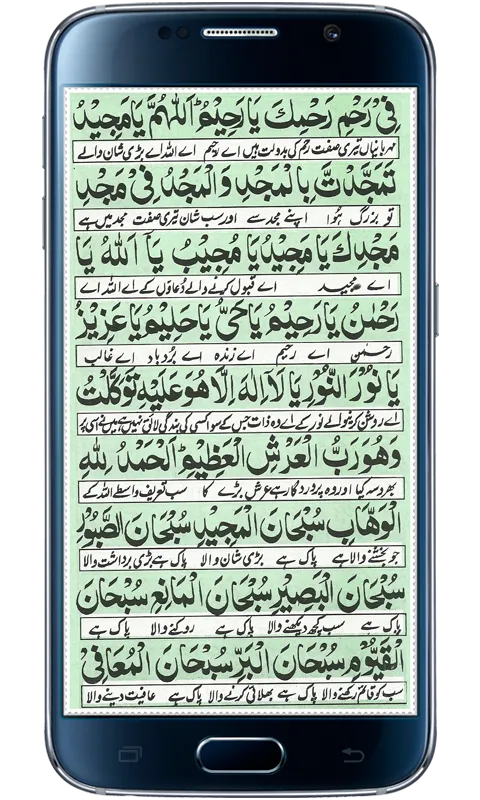 فِيْ رَحْمِ رَحْمِكَ يَا رَحِيْمُ اَللّٰهُمَّ يَا مَجِيْدُ
مہربانیاں تیری صفت رحم کی بدولت ہیں اے رحیم اے اللہ اے بڑی شان والے
تَمَجَّدْتَّ بِالْمَجْدِ وَالْمَجْدُ فِيْ مَجْدِ
تو بزرگ ہوا اپنے مجد سے اور سب شان تیری صفت مجد میں ہے
مَجْدِكَ يَا مَجِيْدُ يَا مُجِيْبُ يَآ اَللّٰهُ يَا
اے مجید اے قبول کرنے والے دعاؤں کے اے اللہ اے
رَحْمٰنُ يَا رَحِيْمُ يَا حَيُّ يَا حَلِيْمُ يَا عَزِيْزُ
رحمٰن اے رحیم اے زندہ اے بردباد اے غالب
يَا نُوْرَ النُّوْرِ يَا لَآ اِلٰهَ اِلَّا هُوَ عَلَيْهِ تَوَكَّلْتُ
اے روشن کرنیوالے نور کے اے وہ ذات جس کے سوا کسی کی بندگی لائق نہیں ہے میں نے اسی پر
وَهُوَ رَبُّ الْعَرْشِ الْعَظِيْمِ اَلْحَمْدُ لِلّٰهِ
بھروسہ کیا اور وہ پروردگار ہے عرش بڑے کا سب تعریف واسطے اللہ کے
الْوَهَّابِ سُبْحَانَ الْمَجِيْدِ سُبْحَانَ الصَّبُوْرِ
جو بخشنے والا ہے پاک ہے بڑی شان والا پاک ہے بڑی برداشت والا
سُبْحَانَ الْبَصِيْرِ سُبْحَانَ الْمَانِعِ سُبْحَانَ
پاک ہے سب کچھ دیکھنے والا پاک ہے روکنے والا پاک ہے
الْقَيُّوْمِ سُبْحَانَ الْبَرِّ سُبْحَانَ الْمُعَافِيْ
سب کو قائم رکھنے والا پاک ہے بھلائی کرنے والا پاک ہے عافیت دینے والا